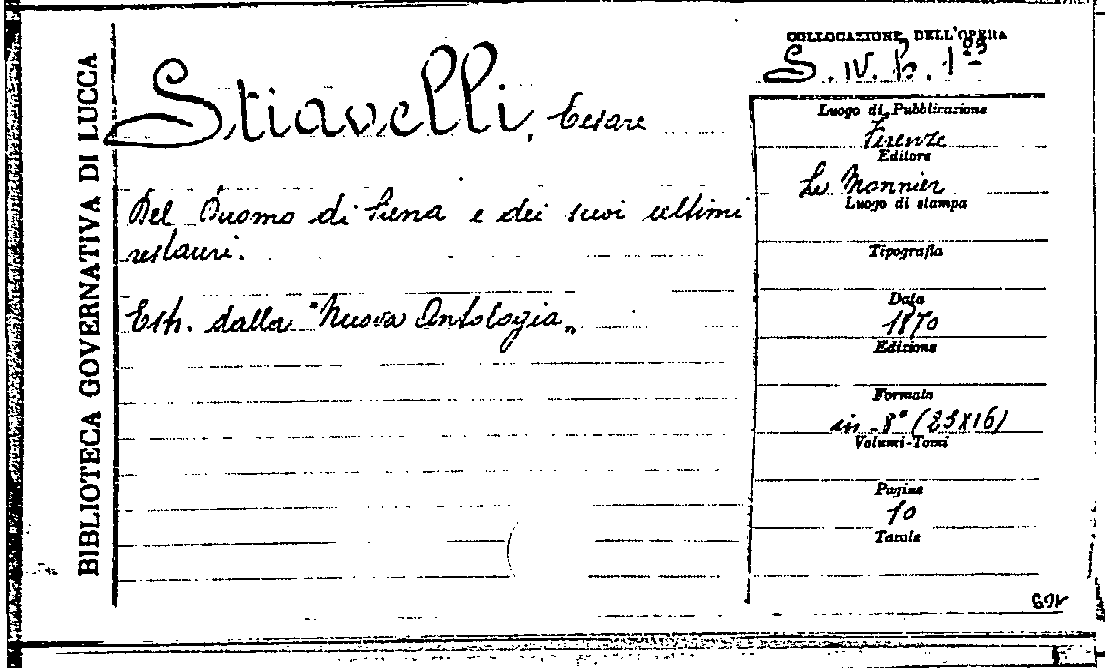 BIBLIOTECA GOVERNATIVA DI LUCCA
Stiavelli, Cesare
Del Duomo di Siena e dei suoi ultimi
restauri.
Estr. dalla "Nuova Antologia„
COLLOCAZIONE DELL'OPERA
Luogo di Pubblicazione
Firenze
Editore
Le Monnier
Luogo di stampa
Tipografia
Data
1870
Edizione
Formato
in-8° (23X16)
Volumi-Tomi
Pagine
10
Tavole